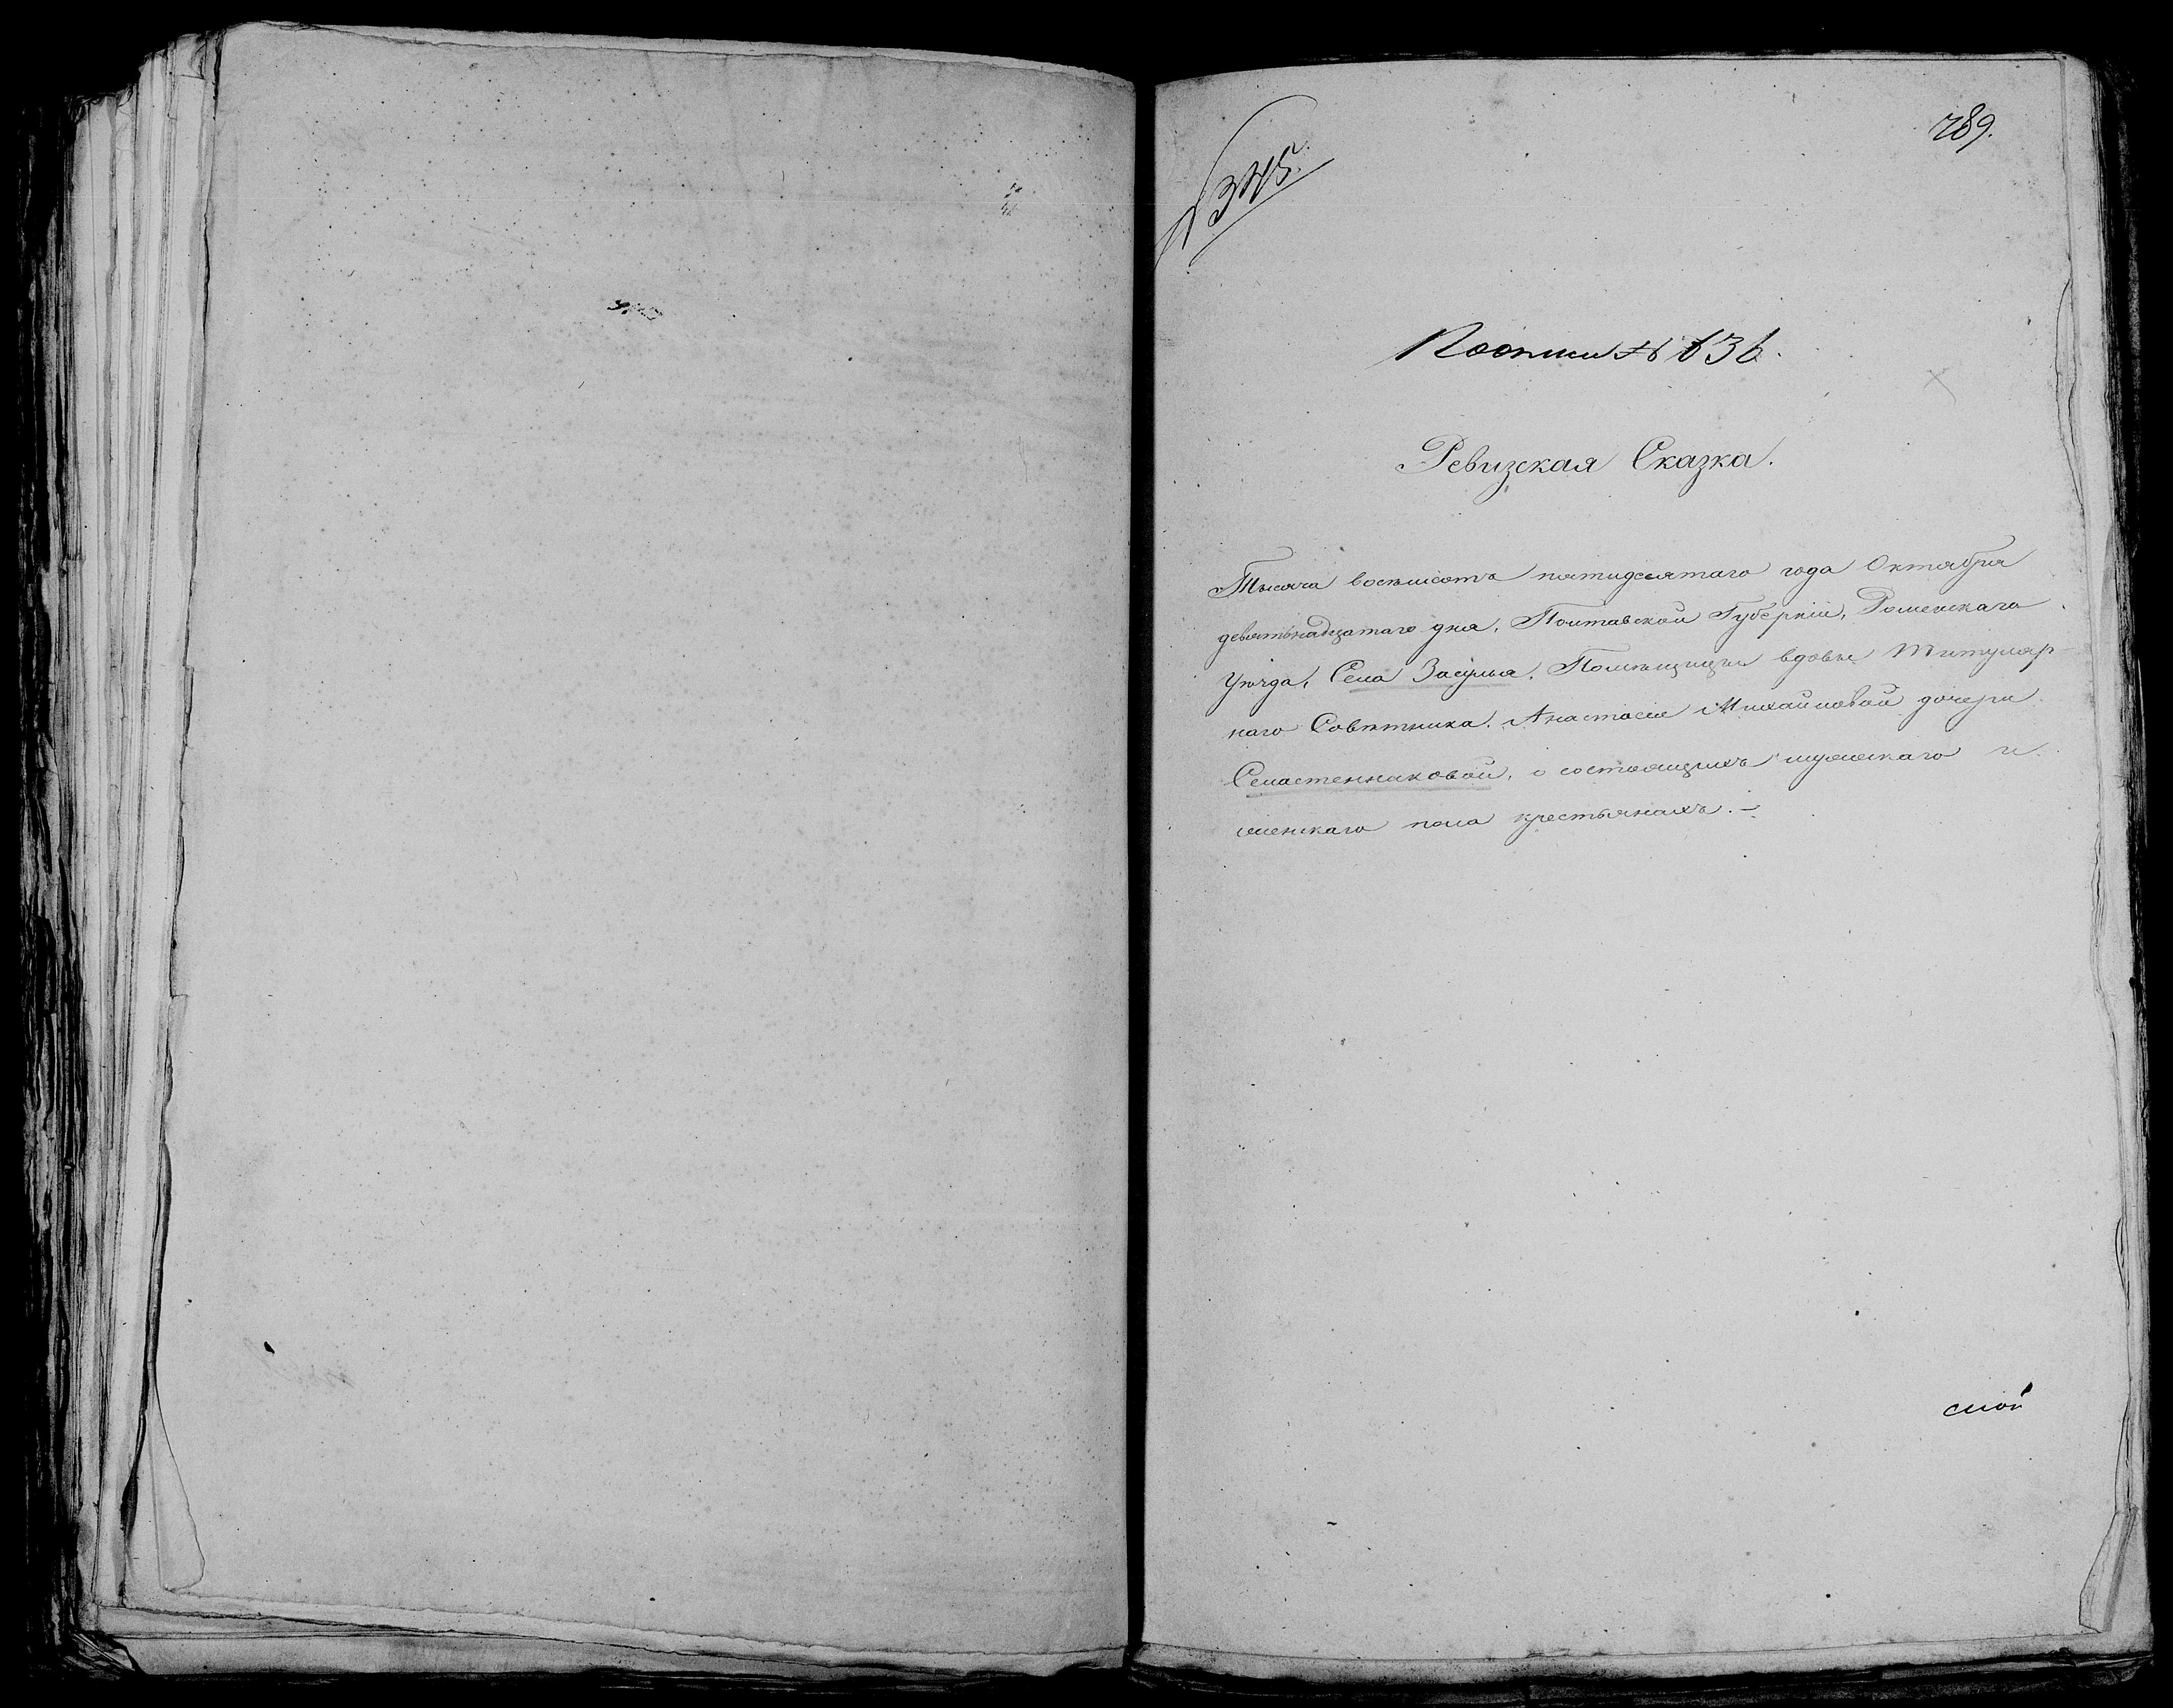 289.
№ 345.
По описи № 636.
Ревизская Сказка.
Тысяча восемьсотъ пятидесятаго года Октября
девятьнадцатаго дня, Полтавской Губерніи, Роменскаго
уѣзда, Села Засулья, Помѣщицы вдовы Титуляр-
наго Совѣтника, Анастасіи Михайловой дочери
Селастенниковой, о состоящихъ мужескаго и
женскаго пола крестьянахъ. —